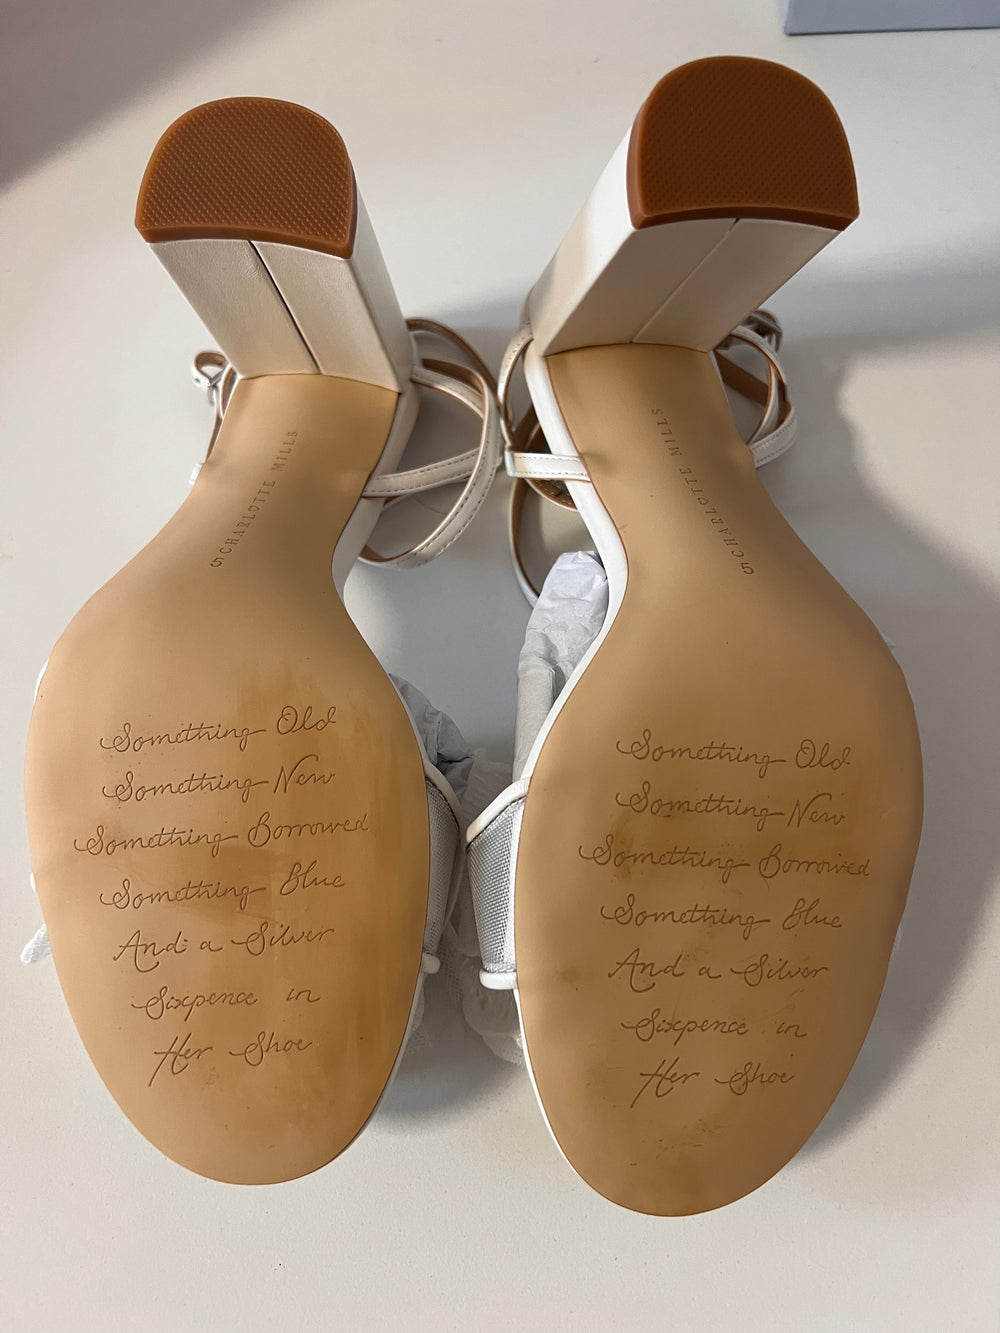 5 CHARLOTTE MILLS
Something Old
Something New
Something Borrowed
Something Blue
And a Silver
Sixpence in
Her Shoe
5 CHARLOTTE MILLS
Something Old
Something New
Something Borrowed
Something Blue
And a Silver
Sixpence in
Her Shoe